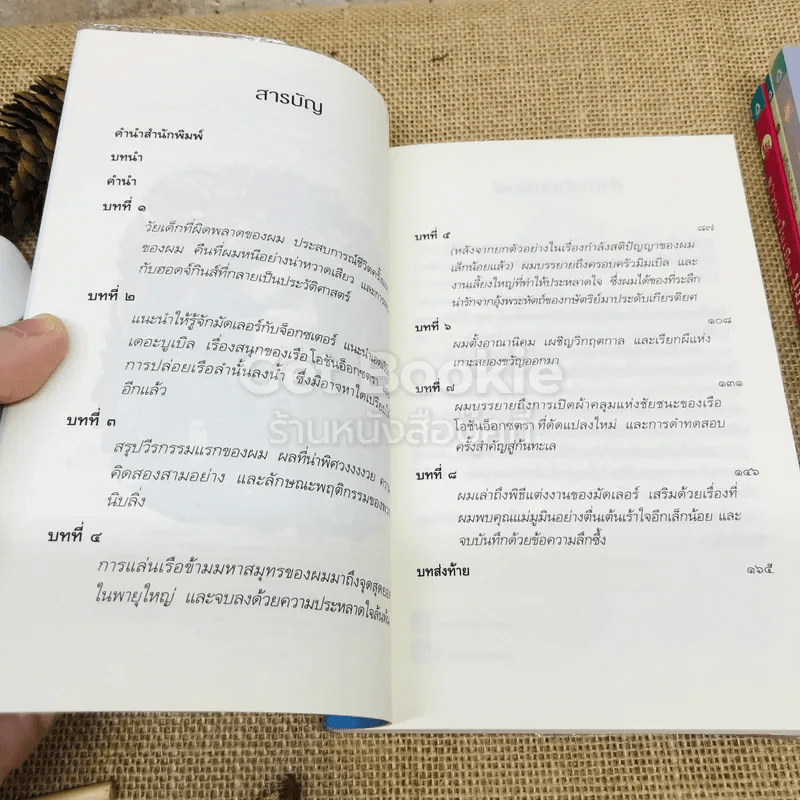 สารบัญ
คำนำสำนักพิมพ์
บทนำ
คำนำ
บทที่ ๑
วัยเด็กที่ผิดพลาดของผม ประสบการณ์ชีวิตครั้งแรก
ของผม คืนที่ผมหนีอย่างน่าหวาดเสียว และการพบ
กับฮอดจ์กินส์ที่กลายเป็นประวัติศาสตร์
บทที่ ๒
แนะนำให้รู้จักมัดเลอร์กับจ็อกซเตอร์ แนะนำเอดเวิร์ด
เดอะบูเบิล เรื่องสนุกของเรือโอชันอ็อกซตรา
การปล่อยเรือลำนั้นลงน้ำ ซึ่งมิอาจหาใดเปรียบได้
อีกแล้ว
บทที่ ๓
สรุปวีรกรรมแรกของผม ผลที่น่าพิศวงงงงวย ความ
คิดสองสามอย่าง และลักษณะพฤติกรรมของพวก
นิบลิ่ง
บทที่ ๔
การแล่นเรือข้ามมหาสมุทรของผมมาถึงจุดสุดยอด
ในพายุใหญ่ และจบลงด้วยความประหลาดใจล้นพ้น
บทที่ ๕ ๘๗
(หลังจากยกตัวอย่างในเรื่องกำลังสติปัญญาของผม
เล็กน้อยแล้ว) ผมบรรยายถึงครอบครัวมิมเบิล และ
งานเลี้ยงใหญ่ที่ทำให้ประหลาดใจ ซึ่งผมได้ของที่ระลึก
น่ารักจากอุ้งพระหัตถ์ของกษัตริย์มาประดับเกียรติยศ
บทที่ ๖ ๑๐๘
ผมตั้งอาณานิคม เผชิญวิกฤตกาล และเรียกผีแห่ง
เกาะสยองขวัญออกมา
บทที่ ๗ ๑๓๑
ผมบรรยายถึงการเปิดผ้าคลุมแห่งชัยชนะของเรือ
โอชันอ็อกซตรา ที่ดัดแปลงใหม่ และการดำทดสอบ
ครั้งสำคัญสู่ก้นทะเล
บทที่ ๘ ๑๔๖
ผมเล่าถึงพิธีแต่งงานของมัดเลอร์ เสริมด้วยเรื่องที่
ผมพบคุณแม่มูมินอย่างตื่นเต้นเร้าใจอีกเล็กน้อย และ
จบบันทึกด้วยข้อความลึกซึ้ง
บทส่งท้าย ๑๖๕
Get Bookie